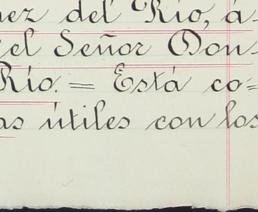 nez del Río, á
el Señor Don
Río. = Está co=
as útiles con los